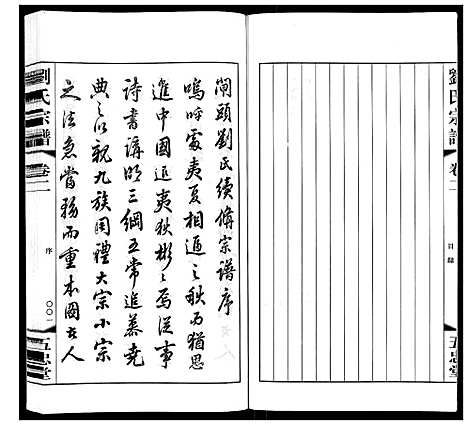 劉氏宗譜
卷二
目錄
五忠堂
閘頭劉氏續修宗譜序
嗚呼處夷夏相遁之秋而猶思
進中國退夷狄彬彬焉從事
詩書講明三綱五常追慕堯
典之以親九族周禮大宗小宗
之法急當務而重本圖
人
劉氏宗譜
卷二
序
〇〇一
五忠堂